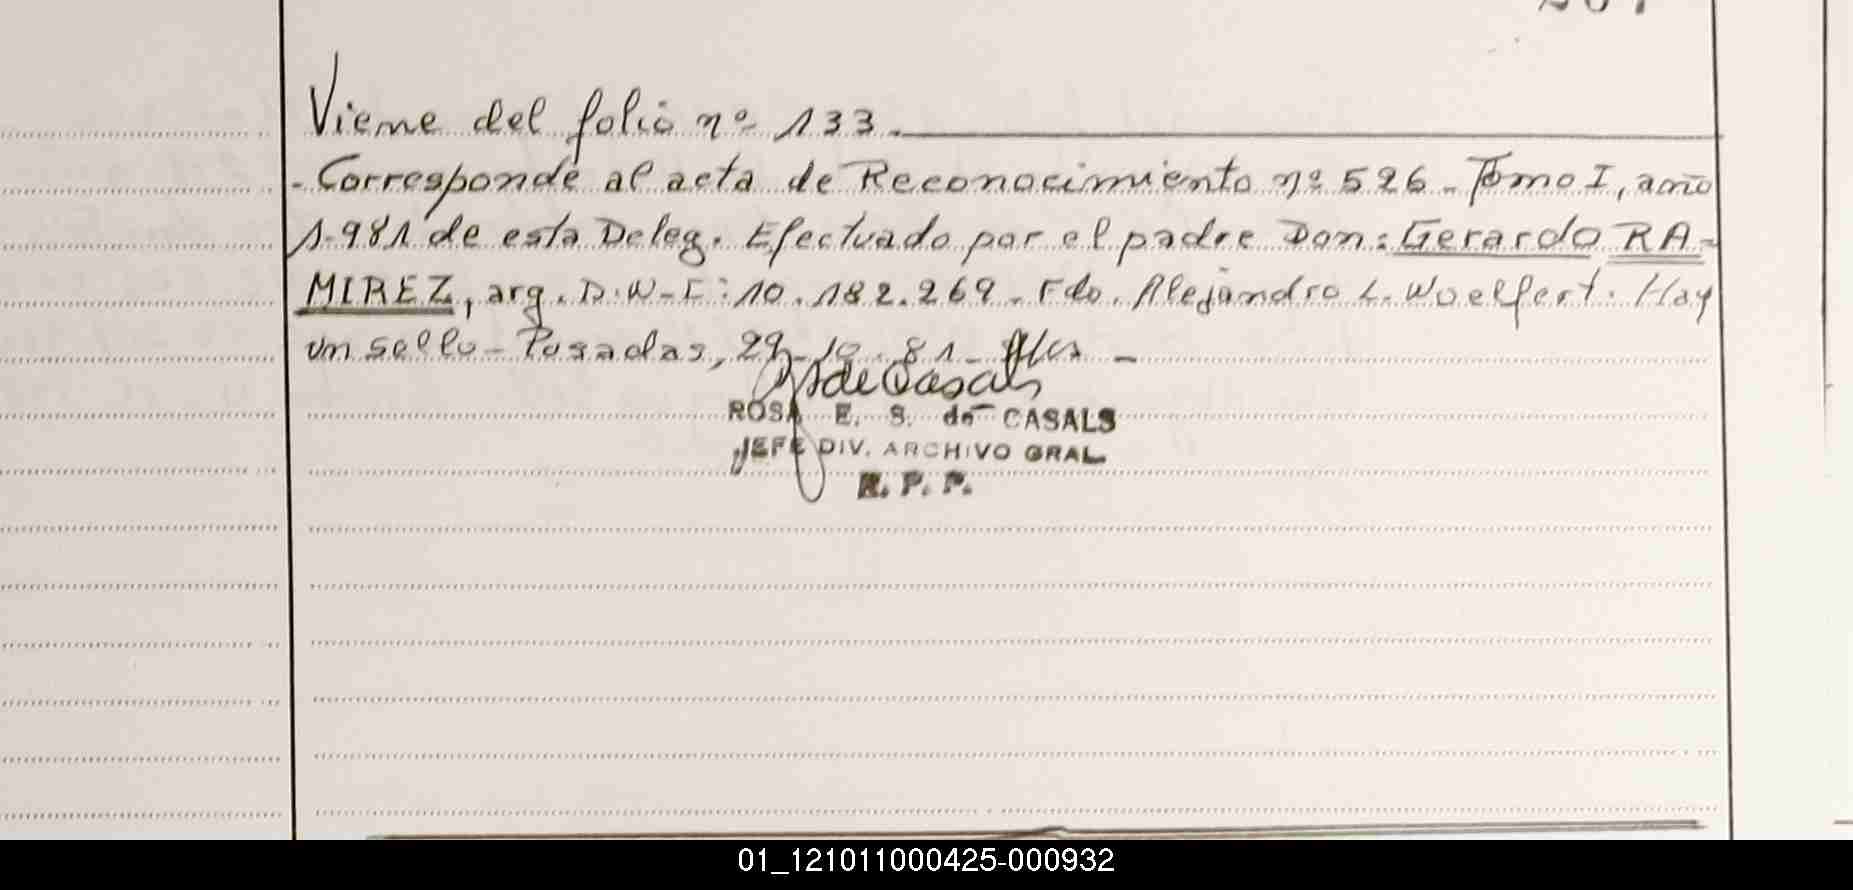 Viene del folio nº 133.
- Corresponde al acta de Reconocimiento nº 526 - Tomo I, año
1.981 de esta Deleg. Efectuado por el padre Don: Gerardo RA-
MIREZ, arg. D.N-I: 10.182.269. Fdo. Alejandro L. Woelfert. Hay
un sello - Posadas, 29-10-81-
de Casals
ROSA E. S. de CASALS
JEFE DIV. ARCHIVO GRAL
R. P. P.
01_121011000425-000932